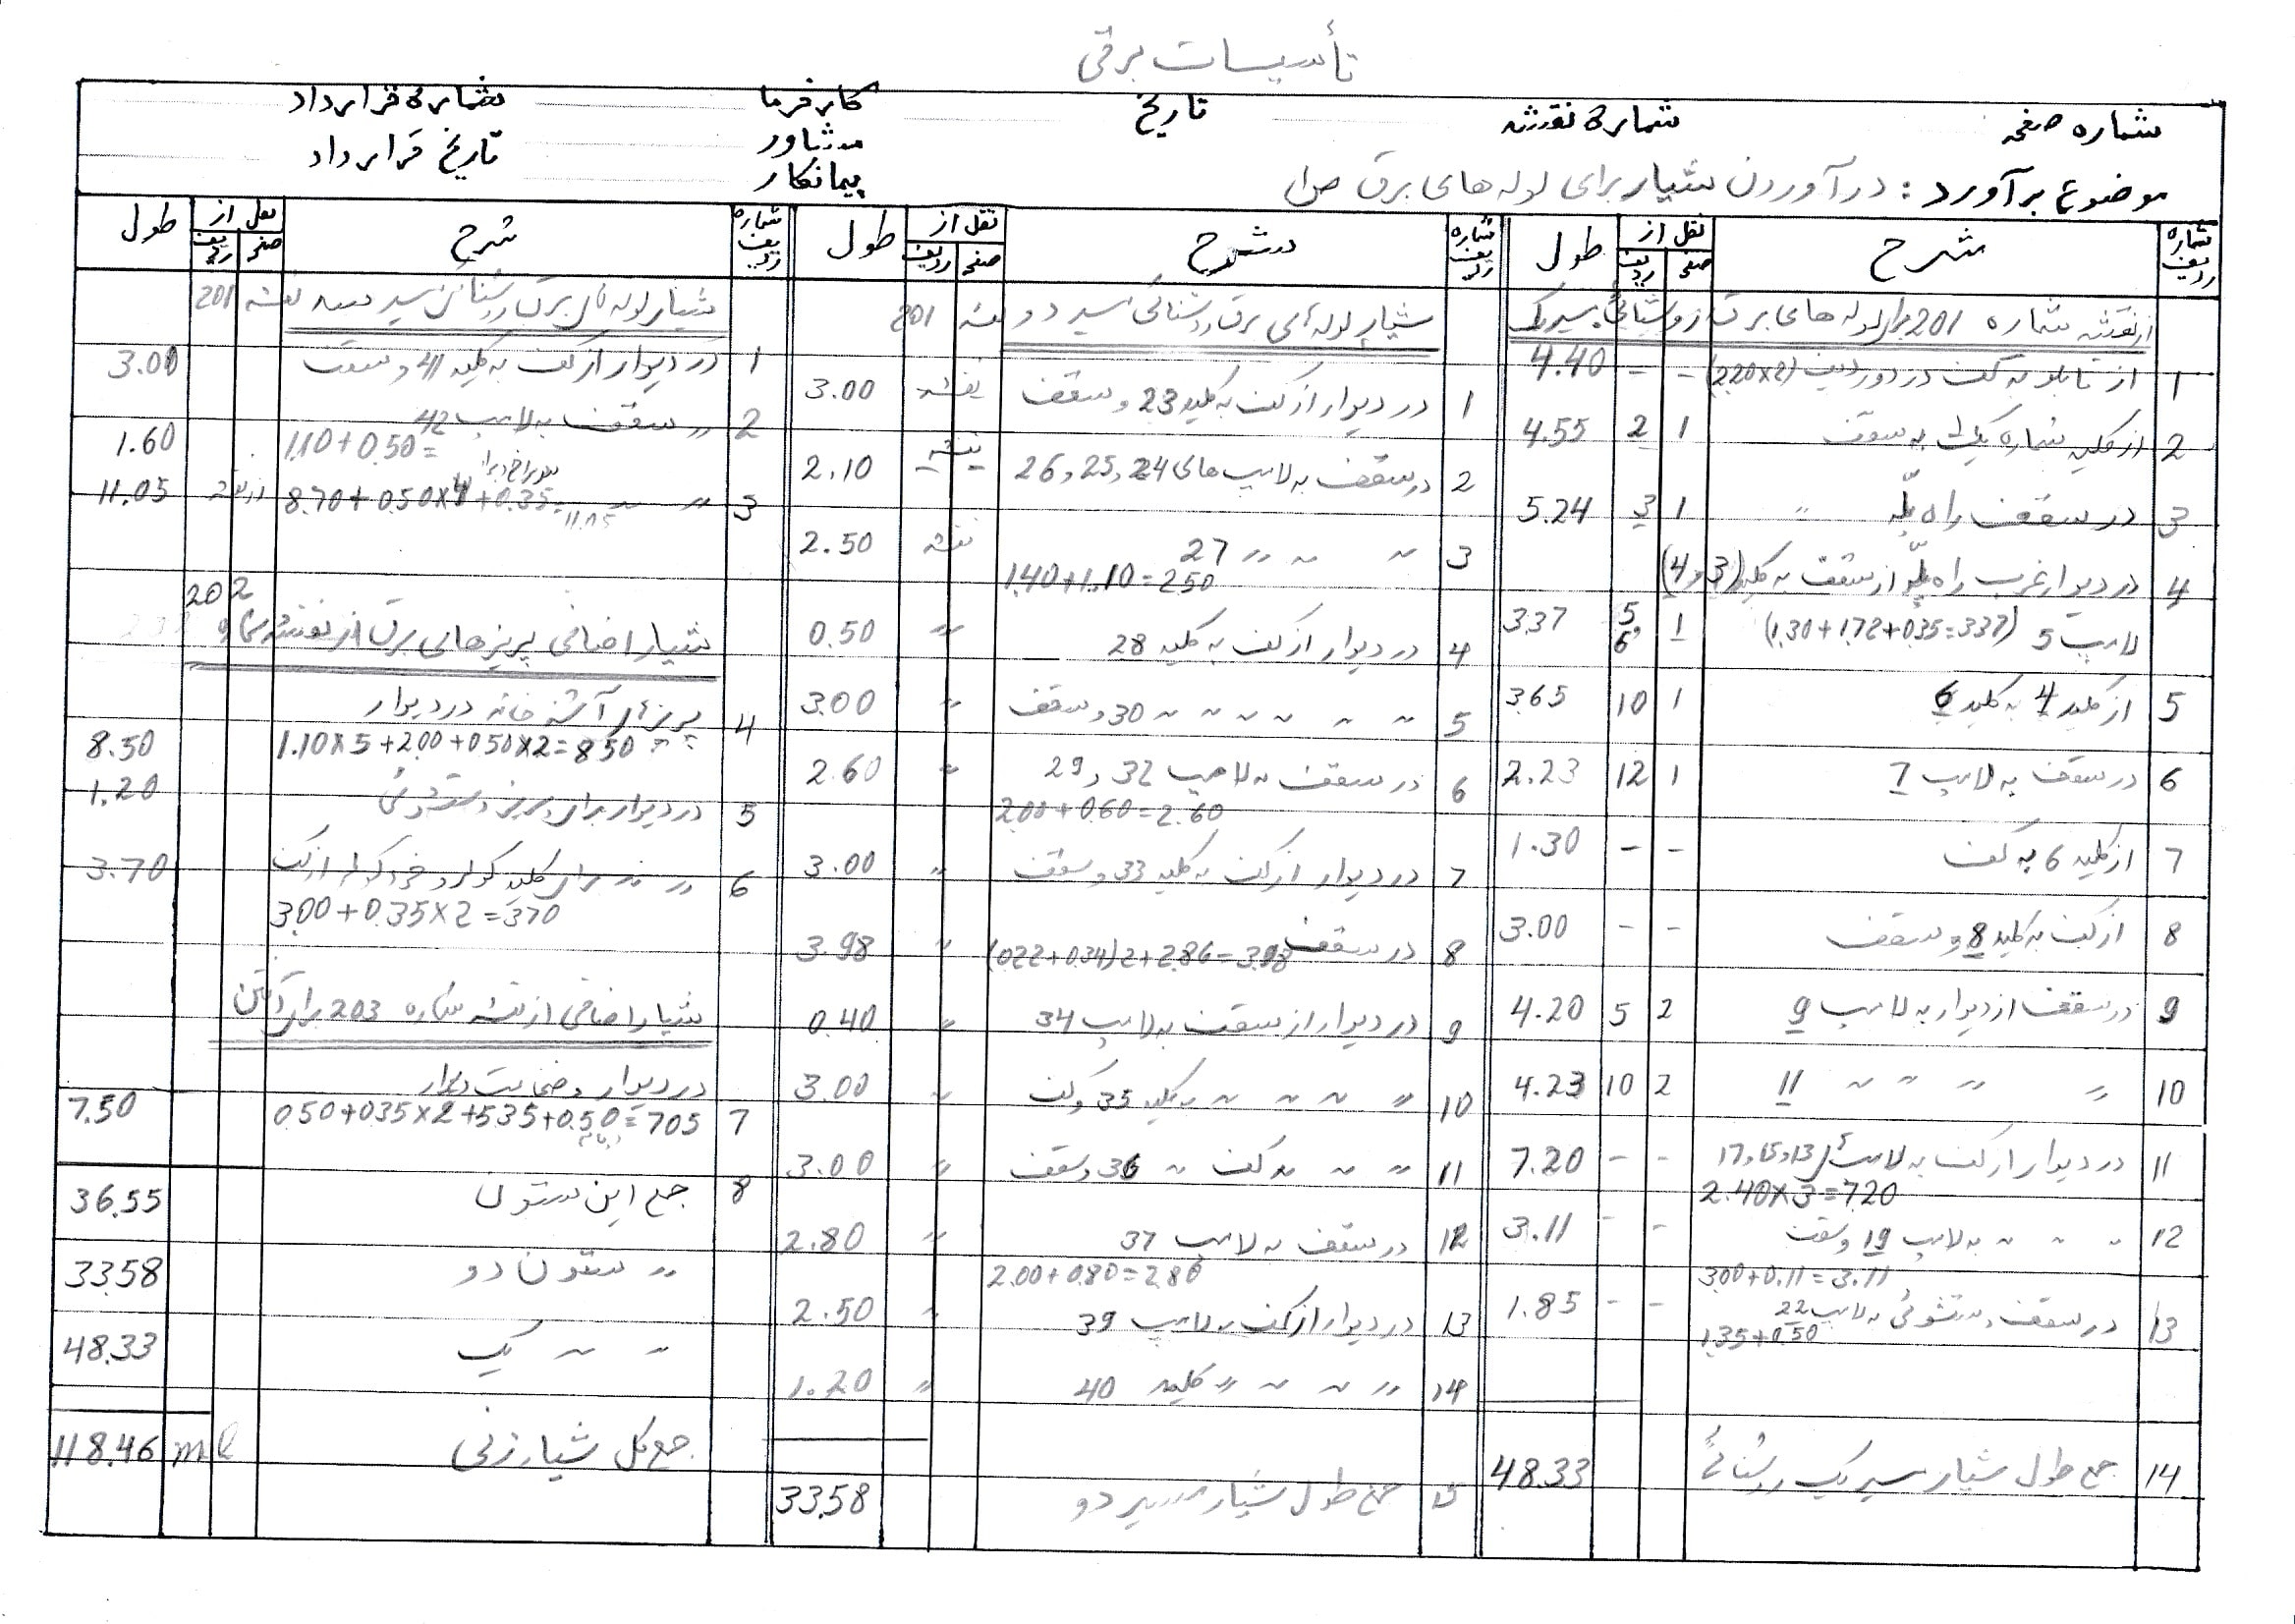 تأسیسات برقی
شماره صفحه
شماره نقشه
تاریخ
کارفرما
شماره قرارداد
مشاور
تاریخ قرارداد
پیمانکار
موضوع برآورد : درآوردن شیار برای لوله های برق
شماره ردیف شرح نقل از صفحه ردیف طول
از نقشه شماره 201 برای لوله های برق روشنائی سیر یک
1 از تابلو به کف در دو ردیف (2.20×2) - - 4.40
2 از کلید شماره یک به سقف 1 2 4.55
3 در سقف راه پله " 1 3 5.24
4 در دیوار غرب راه پله از سقف به کلید (3 و 4)
لامپ 5 (1.30+1.72+0.35=3.37) 1 5 و 6 3.37
5 از کلید 4 به کلید 6 1 10 3.65
6 در سقف به لامپ 7 1 12 2.23
7 از کلید 6 به کف - - 1.30
8 از کف به کلید 8 و سقف - - 3.00
9 در سقف از دیوار به لامپ 9 2 5 4.20
10 " " " " 11 2 10 4.23
11 در دیوار از کف به لامپ 13 و 15 و 17 - - 7.20
2.40×3=7.20
12 " " " به لامپ 19 و سقف - - 3.11
3.00+0.11=3.11
13 در سقف دستشوئی به لامپ 22 - - 1.85
1.35+0.50
14 جمع طول شیار سیر یک روشنائی 48.33
شماره ردیف شرح نقل از صفحه ردیف طول
شیار لوله های برق روشنائی سیر دو نقشه 201
1 در دیوار از کف به کلید 23 و سقف نقشه 3.00
2 در سقف به لامپ های 24 و 25 و 26 نقشه 2.10
3 " " " 27 نقشه 2.50
1.40+1.10=2.50
4 در دیوار از کف به کلید 28 " 0.50
5 " " " " " 30 و سقف " 3.00
6 در سقف به لامپ 32 و 29 " 2.60
2.00+0.60=2.60
7 در دیوار از کف به کلید 33 و سقف " 3.00
8 در سقف (0.22+0.34)2+2.86=3.98 " 3.98
9 در دیوار از سقف به لامپ 34 " 0.40
10 " " " " به کلید 35 و کف " 3.00
11 " " " کف " 36 و سقف " 3.00
12 در سقف به لامپ 37 " 2.80
2.00+0.80=2.80
13 در دیوار از کف به لامپ 39 " 2.50
14 " " " " کلید 40 " 1.20
15 جمع طول شیار سیر دو 33.58
شماره ردیف شرح نقل از صفحه ردیف طول
شیار لوله های برق روشنائی سیر سه نقشه 201
1 در دیوار از کف به کلید 41 و سقف 3.00
2 " سقف به لامپ 42 1.60
1.10+0.50=
3 " " 8.70+0.50×4+0.35= 11.05 از نقشه 11.05
شیار اضافی پریزهای برق از نقشه شماره 202
4 پریزهای آشپزخانه در دیوار 8.50
1.10×5+2.00+0.50×2=8.50
5 در دیوار برای پریز دستشوئی 1.20
6 " " برای کلید کولر و خود کولر از کف 3.70
3.00+0.35×2=3.70
شیار اضافی از نقشه شماره 203 برای آنتن
در دیوار و ضخامت دیوار
7 0.50+0.35×2+5.35+0.50=7.05 7.50
8 جمع این ستون 36.55
" ستون دو 33.58
" " یک 48.33
جمع کل شیارزنی ml 118.46